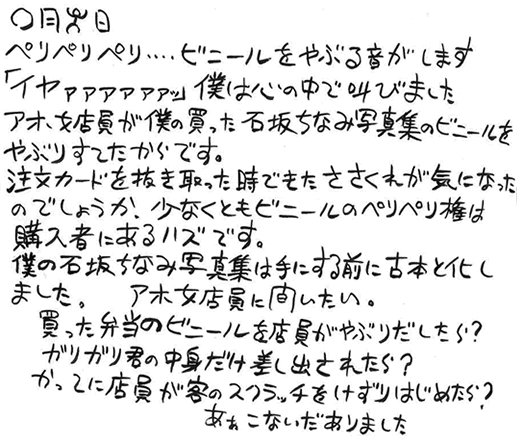 〇月×日
ペリペリペリ‥‥ビニールをやぶる音がします
「イヤァァァァァァッ」僕は心の中で叫びました
アホ女店員が僕の買った石坂ちなみ写真集のビニールを
やぶりすてたからです。
注文カードを抜き取った時できたささくれが気になった
のでしょうか、少なくともビニールのペリペリ権は
購入者にあるハズです。
僕の石坂ちなみ写真集は手にする前に古本と化し
ました。 アホ女店員に問いたい。
買った弁当のビニールを店員がやぶりだしたら?
ガリガリ君の中身だけ差し出されたら?
かってに店員が客のスクラッチをけずりはじめたら?
あぁこないだありました